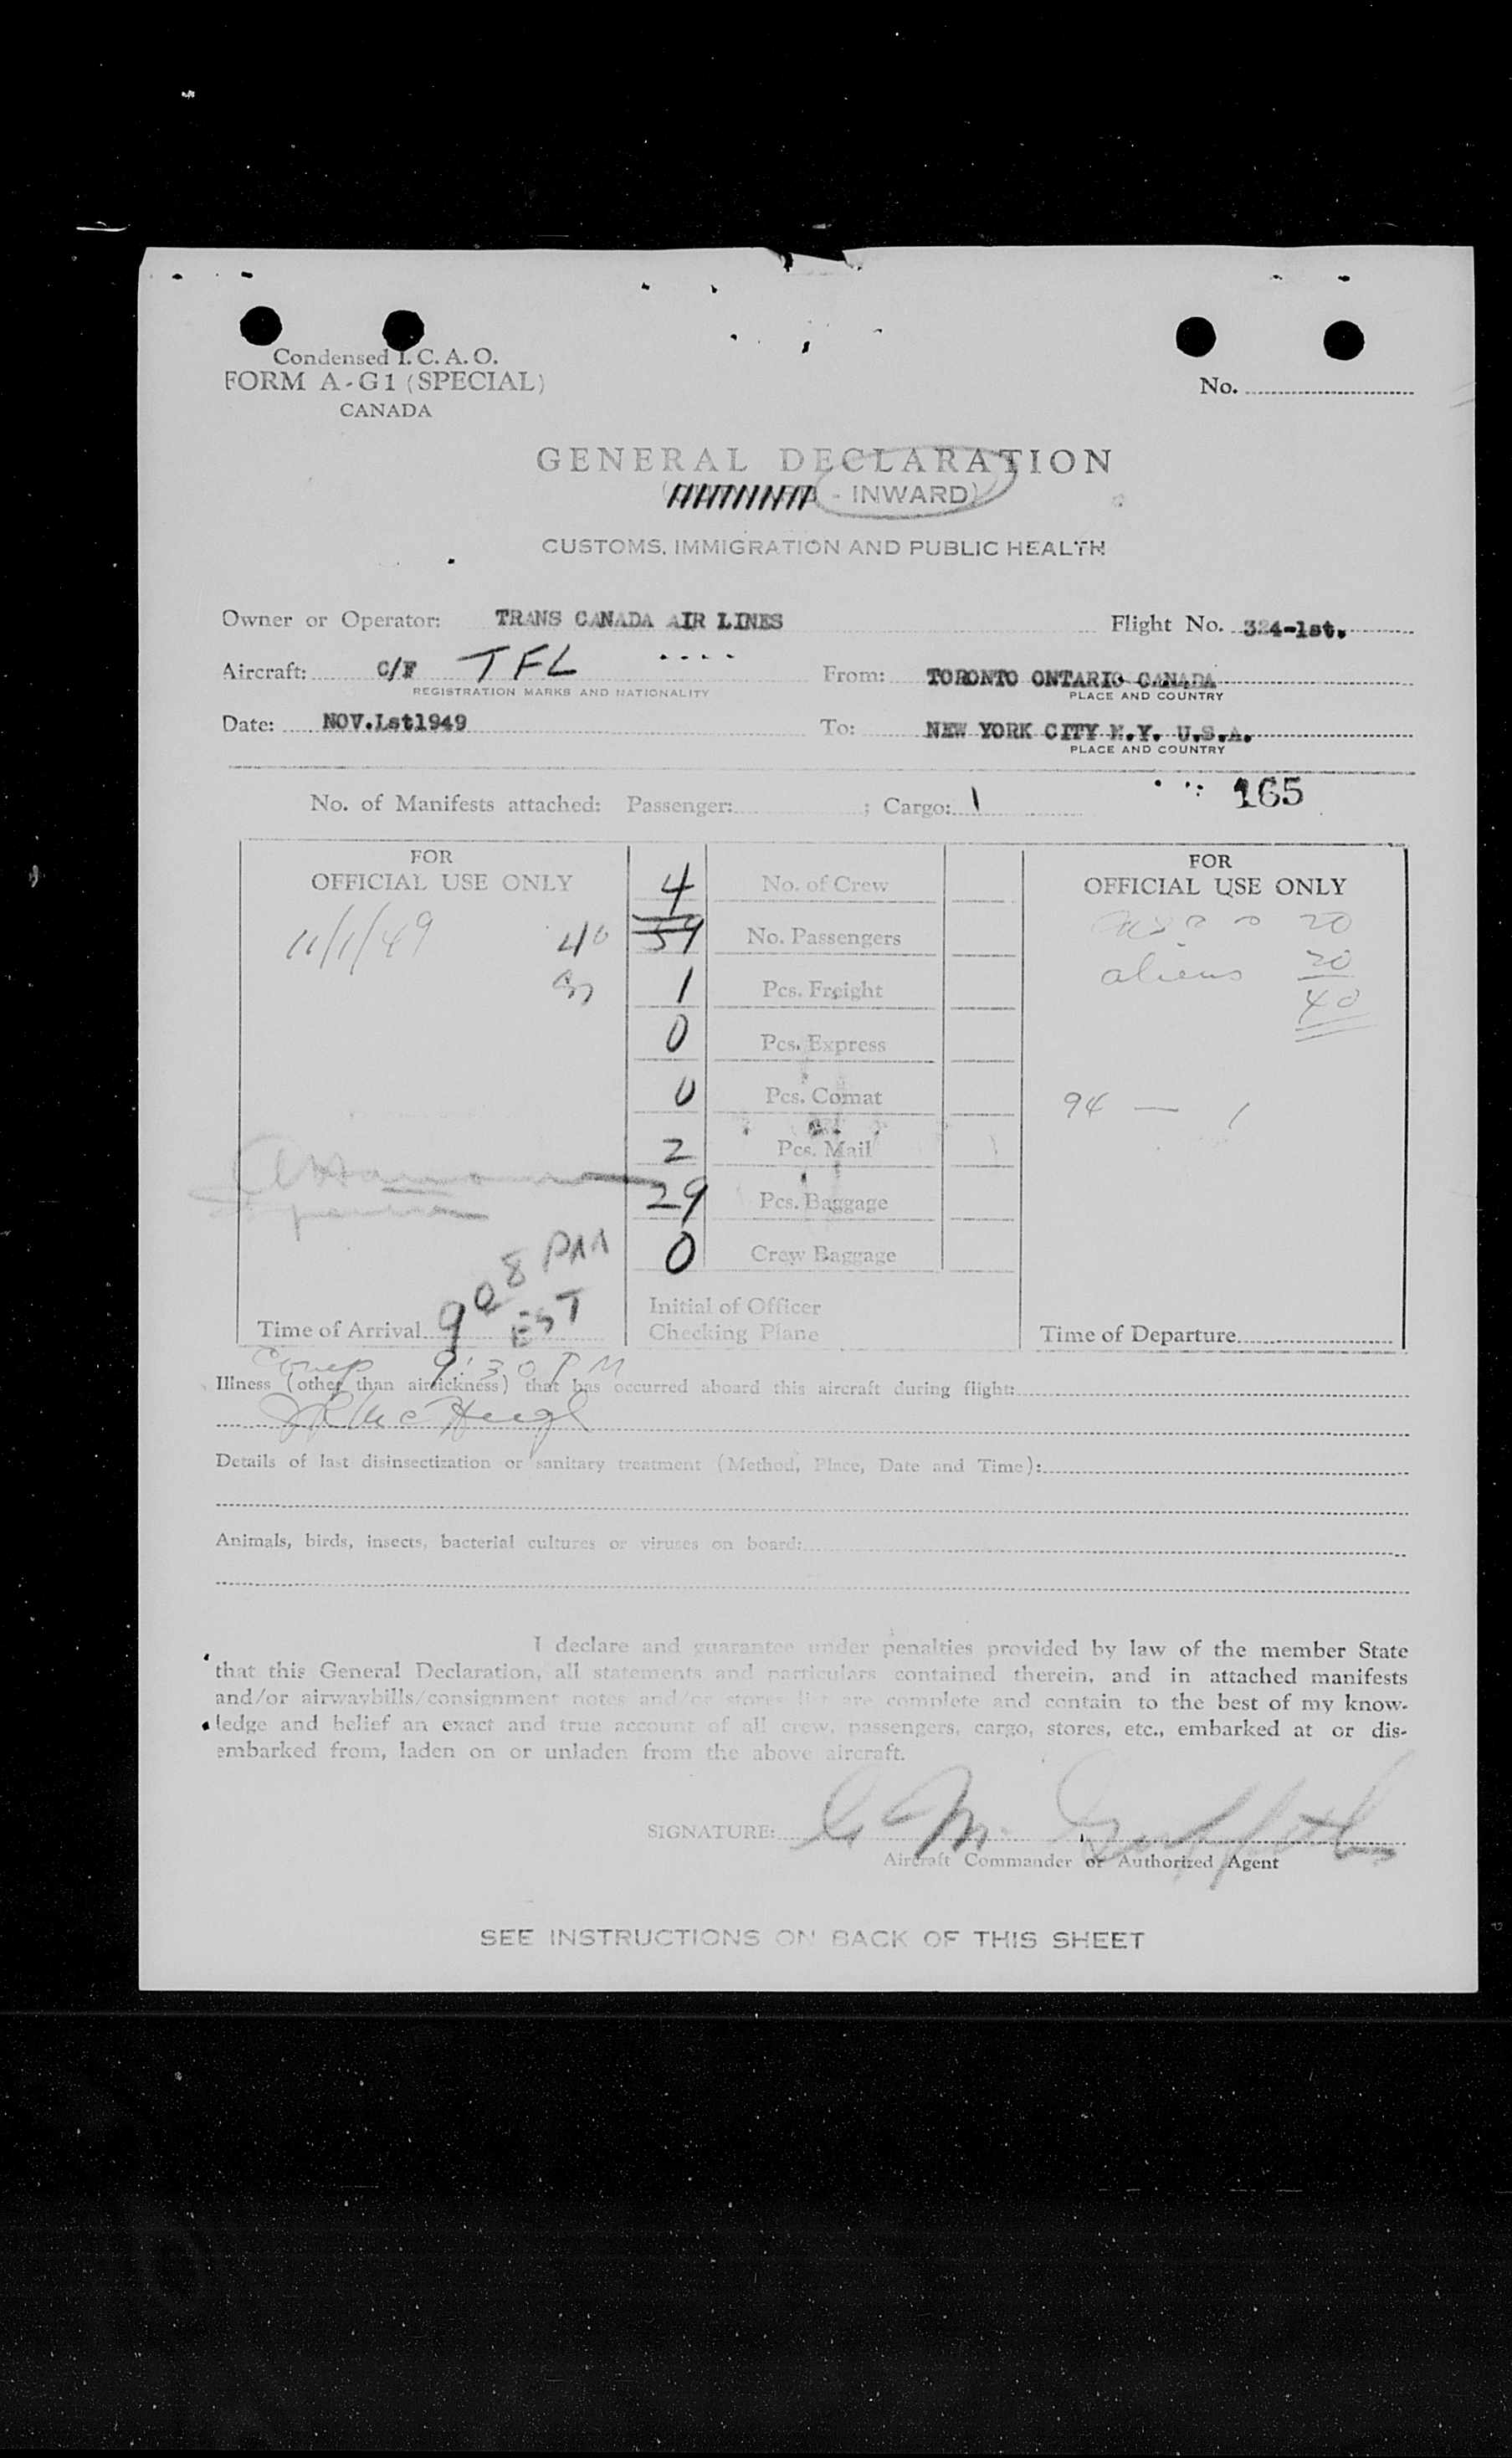 Condensed I. C. A. O.
FORM A-G1 (SPECIAL)
CANADA
No.
GENERAL DECLARATION
- INWARD)
CUSTOMS, IMMIGRATION AND PUBLIC HEALTH
Owner or Operator: TRANS CANADA AIR LINES Flight No. 324-1st.
Aircraft: C/F TFL From: TORONTO ONTARIO CANADA
REGISTRATION MARKS AND NATIONALITY PLACE AND COUNTRY
Date: NOV.1st1949 To: NEW YORK CITY N.Y. U.S.A.
PLACE AND COUNTRY
165
No. of Manifests attached: Passenger: ; Cargo: 1
FOR
OFFICIAL USE ONLY
11/1/49
40
4 No. of Crew
39 No. Passengers
1 Pcs. Freight
0 Pcs. Express
0 Pcs. Comat
2 Pcs. Mail
29 Pcs. Baggage
0 Crew Baggage
Initial of Officer
Checking Plane
FOR
OFFICIAL USE ONLY
20
aliens 20
40
94 — 1
908 PM
EST
Time of Arrival
Time of Departure
Comp 9:30 PM
Illness (other than airsickness) that has occurred aboard this aircraft during flight:
McHugh
Details of last disinsectization or sanitary treatment (Method, Place, Date and Time):
Animals, birds, insects, bacterial cultures or viruses on board:
I declare and guarantee under penalties provided by law of the member State
that this General Declaration, all statements and particulars contained therein, and in attached manifests
and/or airwaybills/consignment notes and/or stores list are complete and contain to the best of my know-
ledge and belief an exact and true account of all crew, passengers, cargo, stores, etc., embarked at or dis-
embarked from, laden on or unladen from the above aircraft.
SIGNATURE:
Aircraft Commander or Authorized Agent
SEE INSTRUCTIONS ON BACK OF THIS SHEET